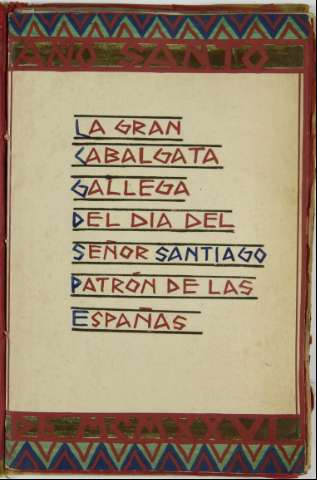 AÑO SANTO
LA GRAN
CABALGATA
GALLEGA
DEL DIA DEL
SEÑOR SANTIAGO
PATRÓN DE LAS
ESPAÑAS
DE MCMXXVI